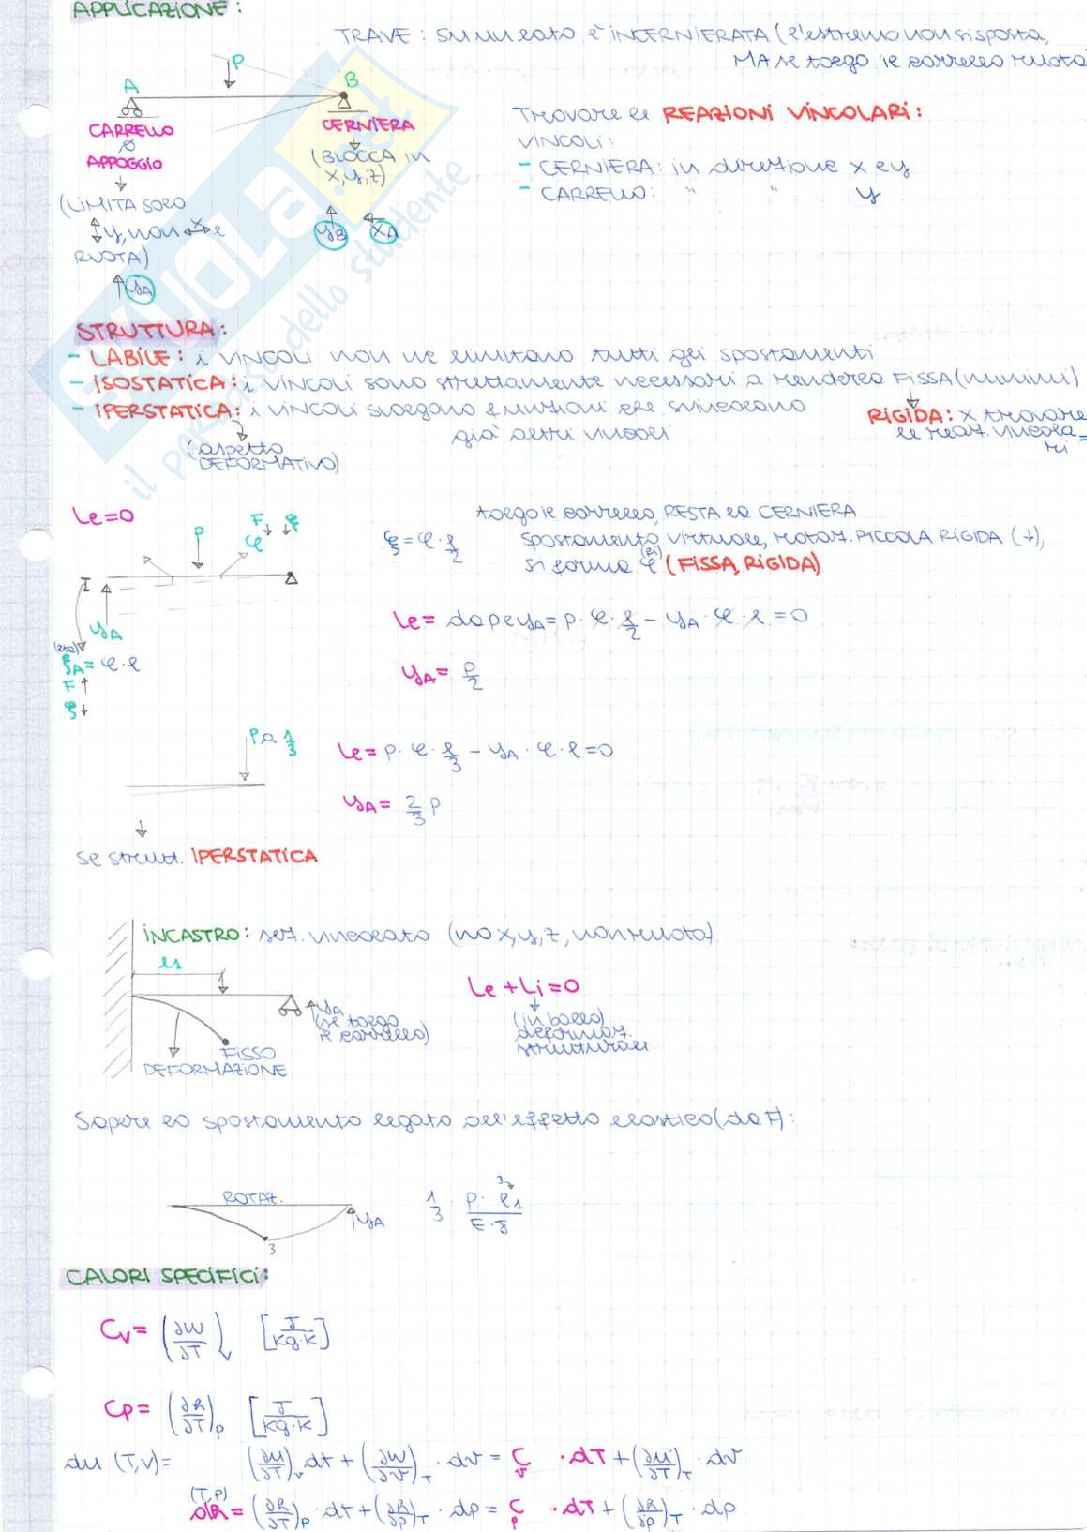 APPLICAZIONE:
TRAVE: su un lato è INCERNIERATA (l'estremo non si sposta,
MA se tolgo il carrello ruota)
P
A B
CARRELLO
o
APPOGGIO
CERNIERA
(BLOCCA in
x,y,z)
(LIMITA SOLO
y, non x e
RUOTA)
yB xA
yA
Trovare le REAZIONI VINCOLARI:
VINCOLI:
- CERNIERA: in direzione x e y
- CARRELLO: " " y
STRUTTURA:
- LABILE: i VINCOLI non ne limitano tutti gli spostamenti
- ISOSTATICA: i VINCOLI sono strettamente necessari a renderla FISSA (minimi)
- IPERSTATICA: i VINCOLI svolgono funzioni che svincolano
già altri vincoli
RIGIDA: x trovare
le reaz. vincola=
ri
(aspetto
DEFORMATIVO)
Le=0
P F ξ
φ
yA
ξA= φ·l
F ↑
ξ ↓
tolgo il carrello, RESTA la CERNIERA
ξ=φ·l/2 spostamento virtuale, rotaz. PICCOLA RIGIDA (+),
si forma φ (FISSA, RIGIDA)
Le= da P e yA = P·φ·l/2 - yA·φ·l=0
yA= P/2
P a 1/3
Le= P·φ·l/3 - yA·φ·l=0
yA= 2/3 P
se strutt. IPERSTATICA
INCASTRO: sez. vincolato (no x,y,z, non ruota)
l1
yA
(se tolgo
il carrello)
FISSO
DEFORMAZIONE
Le+Li=0
(in ballo)
deformaz.
strutturale
Sapere lo spostamento legato all'effetto elastico (da F):
ROTAZ.
yA
3
1/3 · P·l1³/E·J
CALORI SPECIFICI:
Cv= (∂u/∂T)v [J/kg·K]
Cp= (∂h/∂T)p [J/kg·K]
du (T,v)= (∂u/∂T)v dt + (∂u/∂v)T · dv = Cv · dT + (∂u/∂T)T · dv
dh (T,P) = (∂h/∂T)p · dT + (∂h/∂p)T · dp = Cp · dT + (∂h/∂p)T · dp